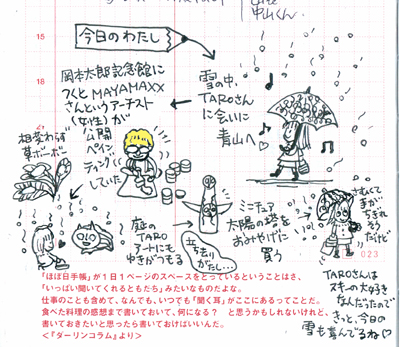 中山くん
今日のわたし
18
15
雪の中、
TAROさん
に会いに
青山へ
岡本太郎記念館に
つくとMAYAMAXX
さんというアーチスト
(女性)が
公開
ペイン
ティング
していた
相変わらず
草ボーボー
庭の
TARO
アートにも
ゆきがつもる
立ち去り
がたし…
ミニチュア
太陽の塔を
おみやげに
買う
さむくて
手が
ちぎれ
そう
だけど
023
TAROさんは
スキーの大好き
なんだったので
きっと、今日の
雪も喜んでるね
「ほぼ日手帳」が1日1ページのスペースをとっているということはさ、
「いっぱい聞いてくれるともだち」みたいなものだよな。
仕事のことも含めて、なんでも、いつでも「聞く耳」がここにあるってことだ。
食べた料理の感想まで書いておいて、何になる? と思うかもしれないけれど、
書いておきたいと思ったら書いておけばいいんだ。
<『ダーリンコラム』より>